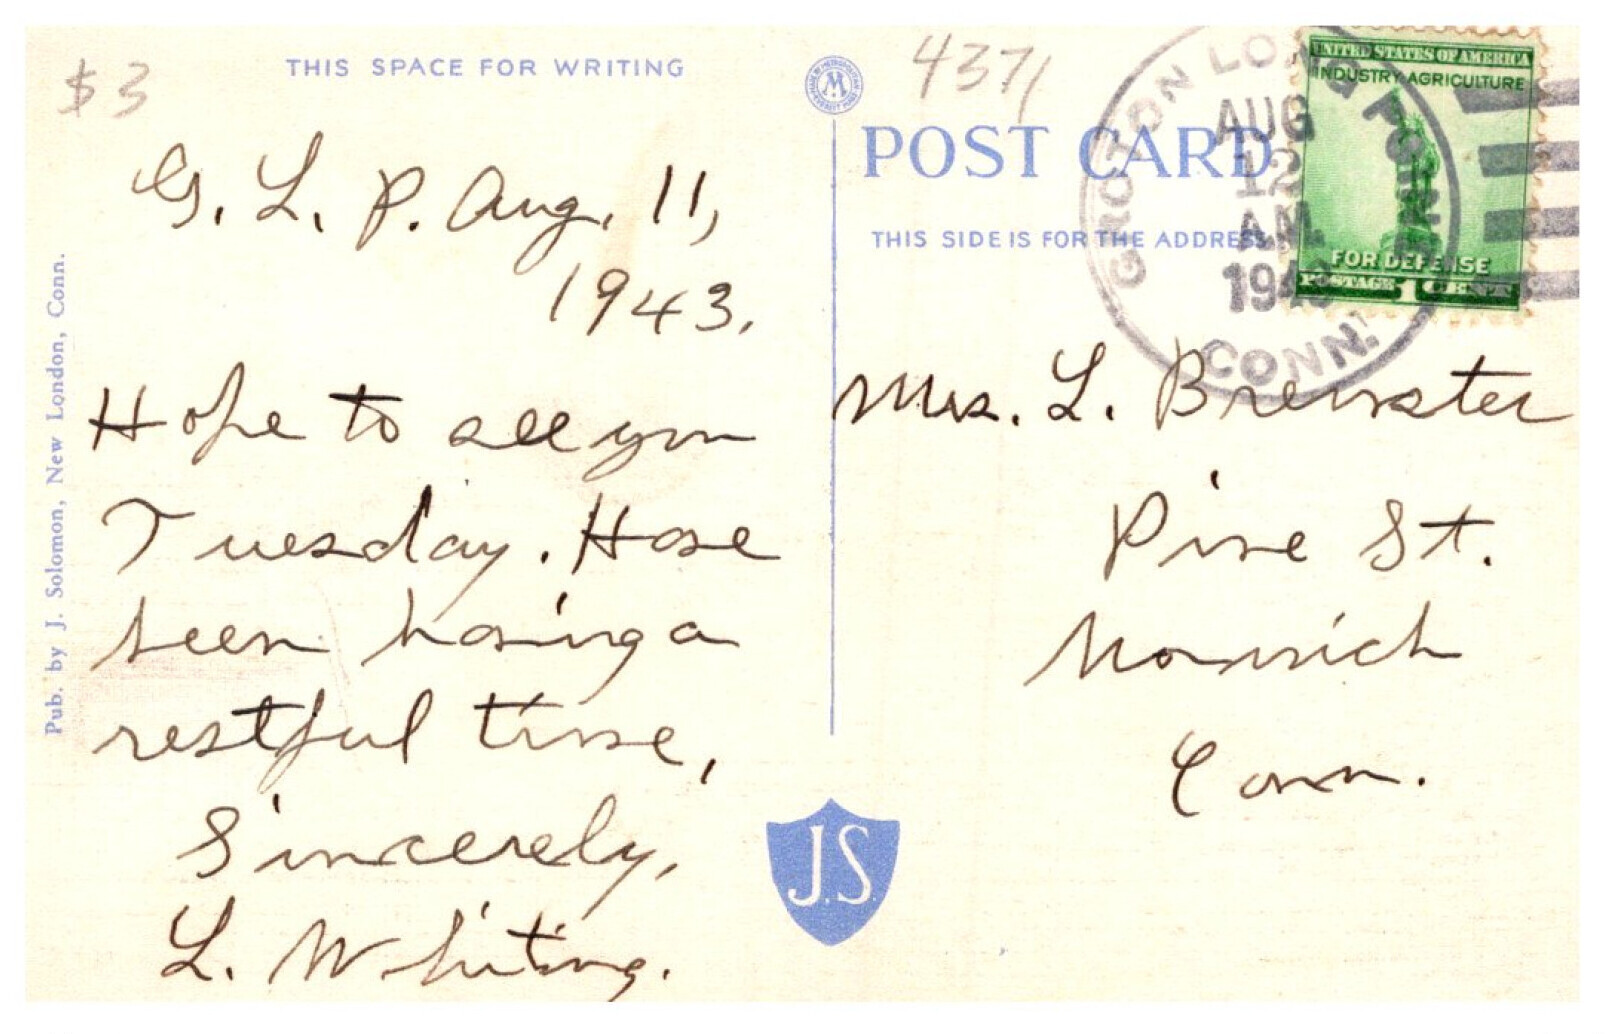 $3
THIS SPACE FOR WRITING
G. L. P. Aug. 11,
1943.
Hope to see you
Tuesday. Have
been having a
restful time,
Sincerely,
L. Whiting.
Pub. by J. Solomon, New London, Conn.
M
4371
POST CARD
THIS SIDE IS FOR THE ADDRESS
GROTON LONG POINT
AUG
12
A.M.
1943
CONN.
UNITED STATES OF AMERICA
INDUSTRY AGRICULTURE
FOR DEFENSE
POSTAGE 1 CENT
Mrs. L. Brewster
Pine St.
Norwich
Conn.
J.S.